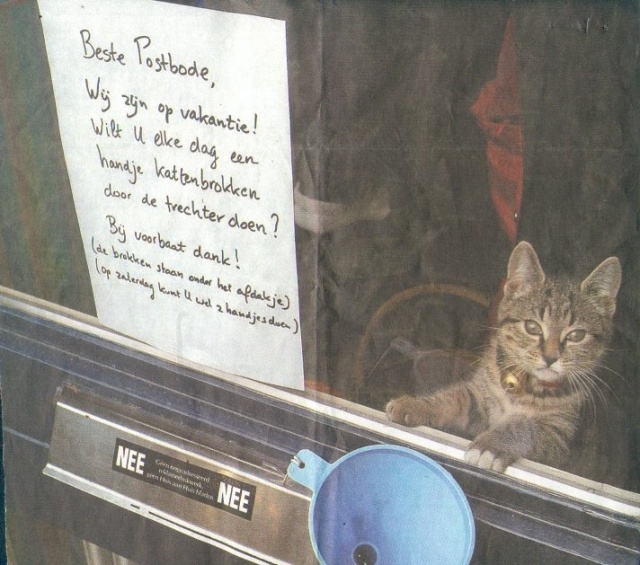 Beste Postbode,
Wij zijn op vakantie!
Wilt U elke dag een
handje kattenbrokken
door de trechter doen?
Bij voorbaat dank!
(de brokken staan onder het afdakje)
(op zaterdag kunt U wel 2 handjes doen)
NEE
Geen ongeadresseerd
reclamedrukwerk,
geen Huis aan Huis bladen
NEE